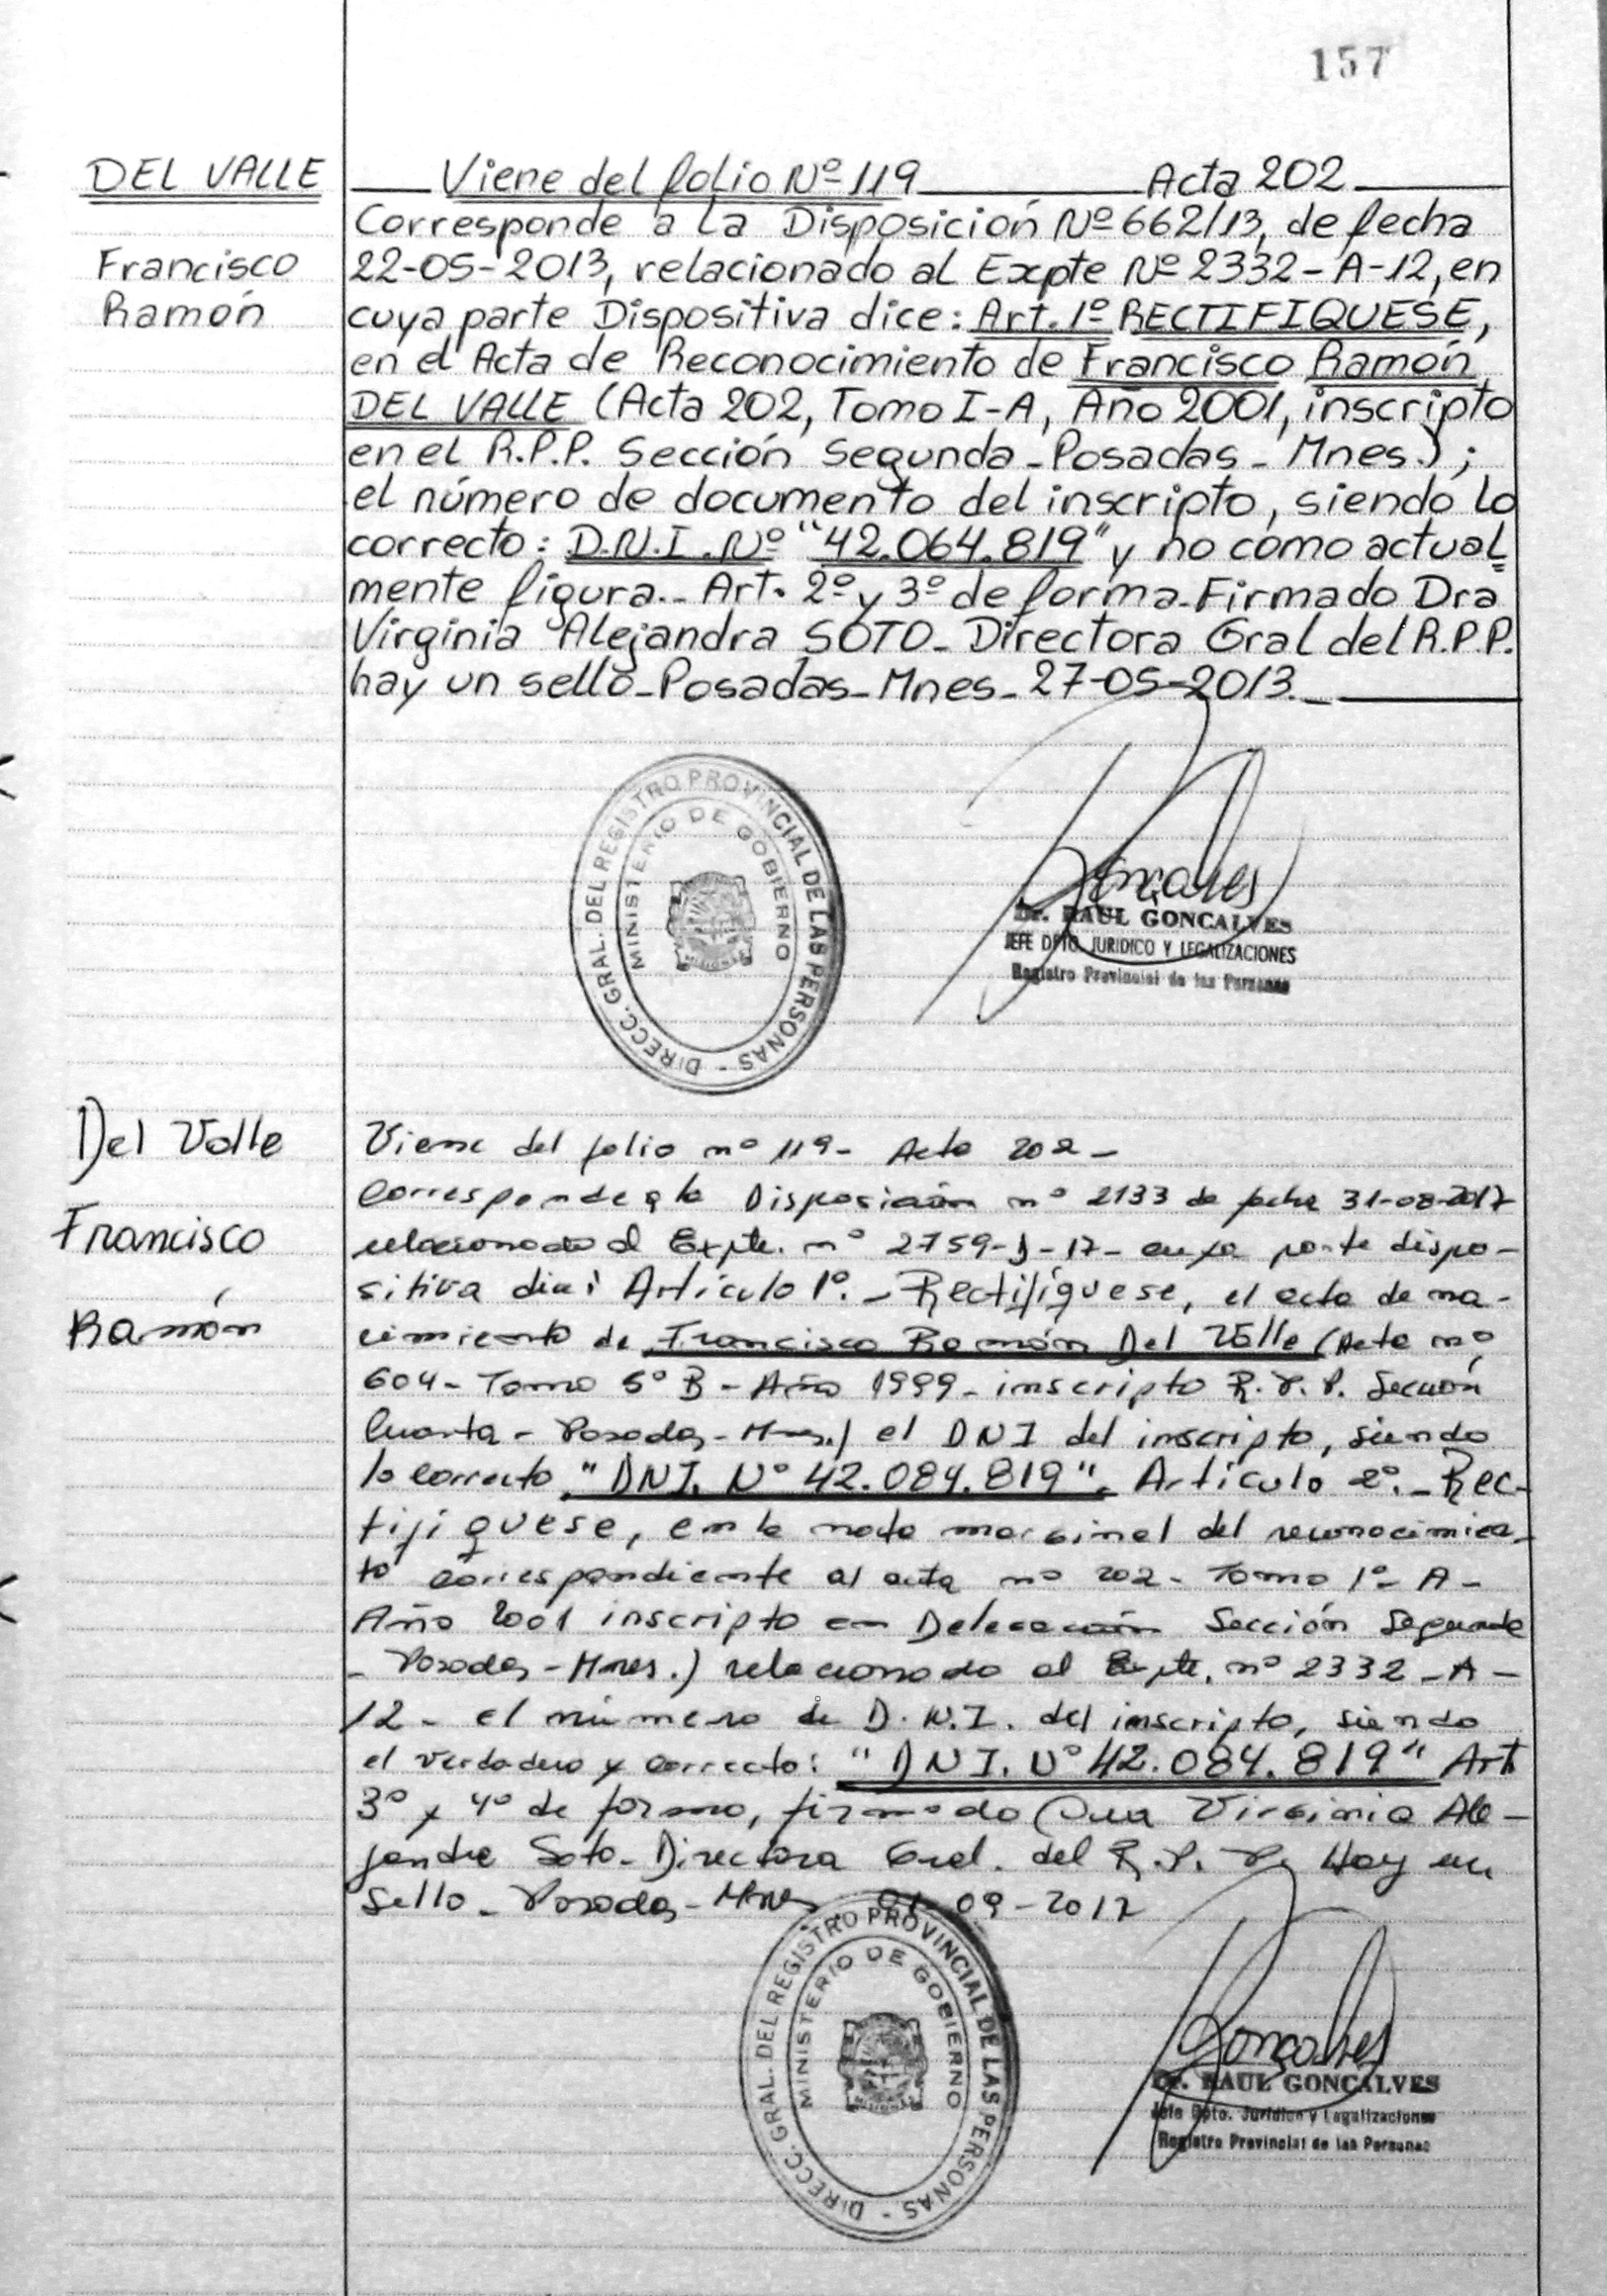 157
DEL VALLE
Francisco
Ramón
Viene del folio Nº 119 Acta 202
Corresponde a la Disposición Nº 662/13, de fecha
22-05-2013, relacionado al Expte Nº 2332-A-12, en
cuya parte Dispositiva dice: Art. 1º RECTIFIQUESE,
en el Acta de Reconocimiento de Francisco Ramón
DEL VALLE (Acta 202, Tomo I-A, Año 2001, inscripto
en el R.P.P. Sección Segunda - Posadas - Mnes.);
el número de documento del inscripto, siendo lo
correcto: D.N.I. Nº "42.064.819" y no como actual
mente figura.- Art. 2º y 3º de forma - Firmado Dra
Virginia Alejandra SOTO - Directora Gral del R.P.P.
hay un sello - Posadas - Mnes - 27-05-2013.
DIRECC. GRAL. DEL REGISTRO PROVINCIAL DE LAS PERSONAS -
MINISTERIO DE GOBIERNO
MISIONES
Goncalves
Dr. RAUL GONCALVES
JEFE DPTO. JURIDICO Y LEGALIZACIONES
Registro Provincial de las Personas
Del Valle
Francisco
Ramón
Viene del folio nº 119 - Acta 202 -
Corresponde a la Disposición nº 2133 de fecha 31-08-2017
relacionado al Expte. nº 2759-D-17 - cuya parte dispo-
sitiva dice: Artículo 1º. - Rectifíquese, el acta de na-
cimiento de Francisco Ramón Del Valle (Acta nº
604 - Tomo 5º B - Año 1999 - inscripto R.P.P. Sección
Cuarta - Posadas - Mnes.) el DNI del inscripto, siendo
lo correcto "DNI. Nº 42.084.819". Artículo 2º. - Rec-
tifíquese, en la nota marginal del reconocimien-
to correspondiente al acta nº 202 - Tomo 1º - A -
Año 2001 inscripto en Delegación Sección Segunda
- Posadas - Mnes.) relacionado al Expte. nº 2332 - A -
12 - el número de D.N.I. del inscripto, siendo
el verdadero y correcto: "DNI. Nº 42.084.819" Art
3º y 4º de forma, firmado Dra Virginia Ale-
jandra Soto - Directora Gral. del R.P.P. Hay un
Sello - Posadas - Mnes 01-09-2017
DIRECC. GRAL. DEL REGISTRO PROVINCIAL DE LAS PERSONAS -
MINISTERIO DE GOBIERNO
MISIONES
Goncalves
Dr. RAUL GONCALVES
Jefe Dpto. Juridico y Legalizaciones
Registro Provincial de las Personas